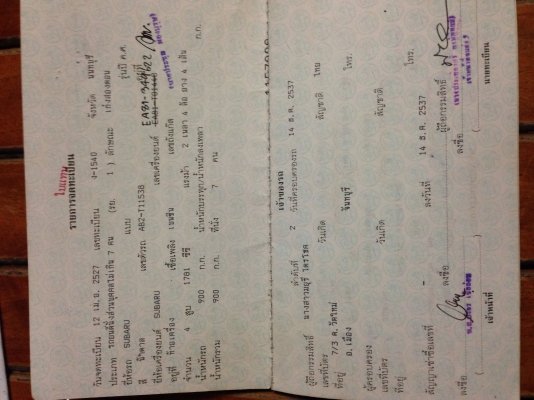 ใบแทน
รายการจดทะเบียน
วันจดทะเบียน 12 เม.ย. 2527 เลขทะเบียน ง-1540 จังหวัด นนทบุรี
ประเภท รถยนต์นั่งส่วนบุคคลไม่เกิน 7 คน (รย. 1 ) ลักษณะ เก๋งสองตอน
ยี่ห้อรถ SUBARU แบบ รุ่นปี ค.ศ.
สี เลขตัวรถ AB2-T11538 อยู่ที่
ยี่ห้อเครื่องยนต์ SUBARU เลขเครื่องยนต์ EA81-
อยู่ที่ ท้ายเครื่อง เชื้อเพลิง เบนซิน เลขถังแก๊ส
จำนวน 4 สูบ 1781 ซีซี แรงม้า 2 เพลา 4 ล้อ ยาง 4 เส้น
น้ำหนักรถ 900 ก.ก. น้ำหนักบรรทุก/น้ำหนักลงเพลา ก.ก.
น้ำหนักรวม 900 ก.ก. ที่นั่ง 7 คน
เจ้าของรถ
ลำดับที่ 2 วันที่ครอบครองรถ 14 ธ.ค. 2537
ผู้ถือกรรมสิทธิ์ นางสาว ไตรโชค
เลขที่บัตร วันเกิด สัญชาติ ไทย
ที่อยู่ 7/3 ต.วัดใหม่ โทร.
อ.เมือง จันทบุรี
ผู้ครอบครอง
เลขที่บัตร วันเกิด สัญชาติ
ที่อยู่ โทร.
สัญญาเช่าซื้อเลขที่ - ลงวันที่ 14 ธ.ค. 2537 ผู้ถือกรรมสิทธิ์
ลงชื่อ ลงชื่อ ลงชื่อ
เจ้าหน้าที่ นายทะเบียน